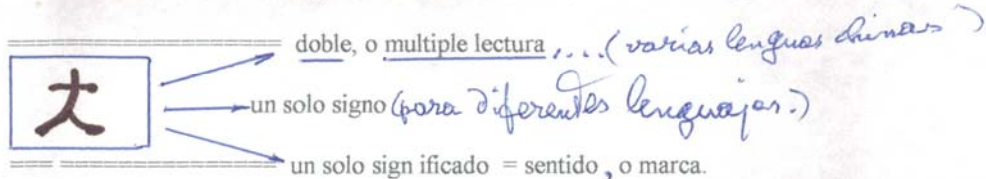 doble, o multiple lectura ,....(varias lenguas chinas)
大
un solo signo (para diferentes lenguajes.)
un solo sign ificado = sentido, o marca.